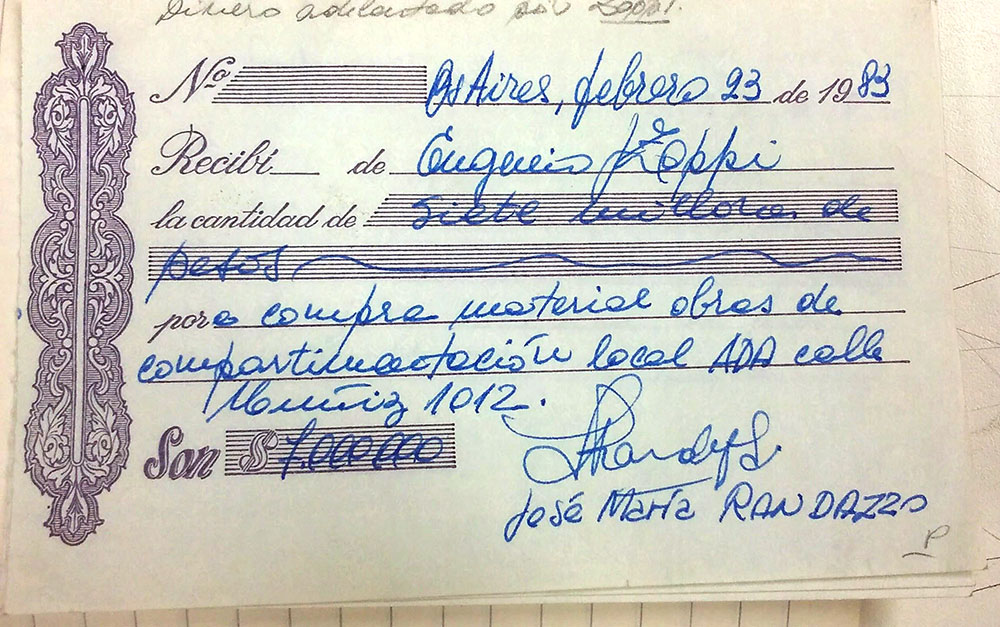 Dinero adelantado por Zoppi.
Nº Bs Aires, febrero 23 de 1983
Recibí de Eugenio Zoppi
la cantidad de siete millones de
pesos
para compra material obras de
compartimentación local ADA calle
Muñiz 1012.
Son $ 7.000.000
José María RANDAZZO
P